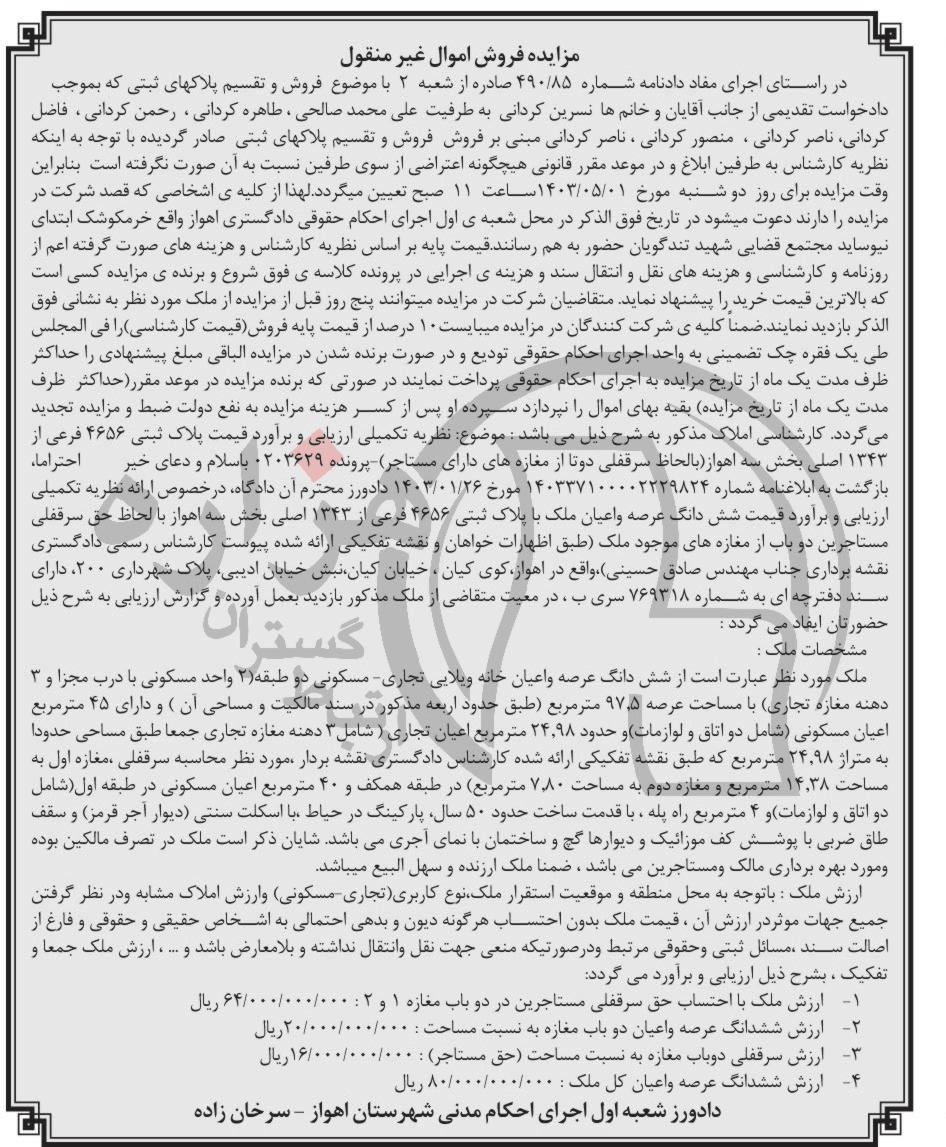 مزایده فروش اموال غیر منقول
در راستای اجرای مفاد دادنامه شماره ۴۹۰/۸۵ صادره از شعبه ۲ با موضوع فروش و تقسیم پلاکهای ثبتی که بموجب
دادخواست تقدیمی از جانب آقایان و خانم ها نسرین کردانی به طرفیت علی محمد صالحی ، طاهره کردانی ، رحمن کردانی ، فاضل
کردانی، ناصر کردانی ، منصور کردانی ، ناصر کردانی مبنی بر فروش فروش و تقسیم پلاکهای ثبتی صادر گردیده با توجه به اینکه
نظریه کارشناس به طرفین ابلاغ و در موعد مقرر قانونی هیچگونه اعتراضی از سوی طرفین نسبت به آن صورت نگرفته است بنابراین
وقت مزایده برای روز دو شنبه مورخ ۱۴۰۳/۰۵/۰۱ساعت ۱۱ صبح تعیین میگردد.لهذا از کلیه ی اشخاصی که قصد شرکت در
مزایده را دارند دعوت میشود در تاریخ فوق الذکر در محل شعبه ی اول اجرای احکام حقوقی دادگستری اهواز واقع خرمکوشک ابتدای
نیوساید مجتمع قضایی شهید تندگویان حضور به هم رسانند.قیمت پایه بر اساس نظریه کارشناس و هزینه های صورت گرفته اعم از
روزنامه و کارشناسی و هزینه های نقل و انتقال سند و هزینه ی اجرایی در پرونده کلاسه ی فوق شروع و برنده ی مزایده کسی است
که بالاترین قیمت خرید را پیشنهاد نماید. متقاضیان شرکت در مزایده میتوانند پنج روز قبل از مزایده از ملک مورد نظر به نشانی فوق
الذکر بازدید نمایند.ضمناً کلیه ی شرکت کنندگان در مزایده میبایست۱۰ درصد از قیمت پایه فروش(قیمت کارشناسی)را فی المجلس
طی یک فقره چک تضمینی به واحد اجرای احکام حقوقی تودیع و در صورت برنده شدن در مزایده الباقی مبلغ پیشنهادی را حداکثر
ظرف مدت یک ماه از تاریخ مزایده به اجرای احکام حقوقی پرداخت نمایند در صورتی که برنده مزایده در موعد مقرر(حداکثر ظرف
مدت یک ماه از تاریخ مزایده) بقیه بهای اموال را نپردازد سپرده او پس از کسر هزینه مزایده به نفع دولت ضبط و مزایده تجدید
می‌گردد. کارشناسی املاک مذکور به شرح ذیل می باشد : موضوع: نظریه تکمیلی ارزیابی و برآورد قیمت پلاک ثبتی ۴۶۵۶ فرعی از
۱۳۴۳ اصلی بخش سه اهواز(بالحاظ سرقفلی دوتا از مغازه های دارای مستاجر)-پرونده ۰۲۰۳۶۲۹ باسلام و دعای خیر احتراما،
بازگشت به ابلاغنامه شماره ۱۴۰۳۳۷۱۰۰۰۰۲۲۲۹۸۲۴ مورخ ۱۴۰۳/۰۱/۲۶ دادورز محترم آن دادگاه، درخصوص ارائه نظریه تکمیلی
ارزیابی و برآورد قیمت شش دانگ عرصه واعیان ملک با پلاک ثبتی ۴۶۵۶ فرعی از ۱۳۴۳ اصلی بخش سه اهواز با لحاظ حق سرقفلی
مستاجرین دو باب از مغازه های موجود ملک (طبق اظهارات خواهان و نقشه تفکیکی ارائه شده پیوست کارشناس رسمی دادگستری
نقشه برداری جناب مهندس صادق حسینی)،واقع در اهواز،کوی کیان ، خیابان کیان،نبش خیابان ادیبی، پلاک شهرداری ۲۰۰، دارای
سند دفترچه ای به شماره ۷۶۹۳۱۸ سری ب ، در معیت متقاضی از ملک مذکور بازدید بعمل آورده و گزارش ارزیابی به شرح ذیل
حضورتان ایفاد می گردد :
مشخصات ملک :
ملک مورد نظر عبارت است از شش دانگ عرصه واعیان خانه ویلایی تجاری- مسکونی دو طبقه(۲ واحد مسکونی با درب مجزا و ۳
دهنه مغازه تجاری) با مساحت عرصه ۹۷٫۵ مترمربع (طبق حدود اربعه مذکور در سند مالکیت و مساحی آن ) و دارای ۴۵ مترمربع
اعیان مسکونی (شامل دو اتاق و لوازمات)و حدود ۲۴٫۹۸ مترمربع اعیان تجاری( شامل۳ دهنه مغازه تجاری جمعا طبق مساحی حدودا
به متراژ ۲۴٫۹۸ مترمربع که طبق نقشه تفکیکی ارائه شده کارشناس دادگستری نقشه بردار ،مورد نظر محاسبه سرقفلی ،مغازه اول به
مساحت ۱۴٫۳۸ مترمربع و مغازه دوم به مساحت ۷٫۸۰ مترمربع) در طبقه همکف و ۴۰ مترمربع اعیان مسکونی در طبقه اول(شامل
دو اتاق و لوازمات)و ۴ مترمربع راه پله ، با قدمت ساخت حدود ۵۰ سال، پارکینگ در حیاط ،با اسکلت سنتی (دیوار آجر قرمز) و سقف
طاق ضربی با پوشش کف موزائیک و دیوارها گچ و ساختمان با نمای آجری می باشد. شایان ذکر است ملک در تصرف مالکین بوده
ومورد بهره برداری مالک ومستاجرین می باشد ، ضمنا ملک ارزنده و سهل البیع میباشد.
ارزش ملک : باتوجه به محل منطقه و موقعیت استقرار ملک،نوع کاربری(تجاری-مسکونی) وارزش املاک مشابه ودر نظر گرفتن
جمیع جهات موثردر ارزش آن ، قیمت ملک بدون احتساب هرگونه دیون و بدهی احتمالی به اشخاص حقیقی و حقوقی و فارغ از
اصالت سند ،مسائل ثبتی وحقوقی مرتبط ودرصورتیکه منعی جهت نقل وانتقال نداشته و بلامعارض باشد و ... ، ارزش ملک جمعا و
تفکیک ، بشرح ذیل ارزیابی و برآورد می گردد:
۱- ارزش ملک با احتساب حق سرقفلی مستاجرین در دو باب مغازه ۱ و ۲ : ۶۴/۰۰۰/۰۰۰/۰۰۰ ریال
۲- ارزش ششدانگ عرصه واعیان دو باب مغازه به نسبت مساحت : ۲۰/۰۰۰/۰۰۰/۰۰۰ریال
۳- ارزش سرقفلی دوباب مغازه به نسبت مساحت (حق مستاجر) : ۱۶/۰۰۰/۰۰۰/۰۰۰ریال
۴- ارزش ششدانگ عرصه واعیان کل ملک : ۸۰/۰۰۰/۰۰۰/۰۰۰ ریال
دادورز شعبه اول اجرای احکام مدنی شهرستان اهواز - سرخان زاده